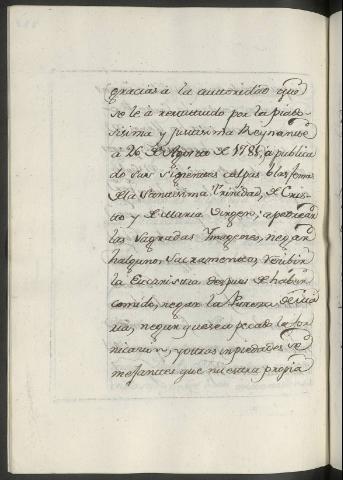 gracias à la autoridad que
se le à restituido por la piado-
sisima y Justisima Reyna
à 26 de Agosto de 178, à publica
do sus siguientes culpas blasfemar
de la Santisima Trinidad, de Cris-
to y de Maria Virgen; apedrear
las Sagradas Imagenes, negar
halgunos Sacramentos, recibir
la Eucaristia despues de haber
comido, negar la Pureza de Ma
ria, negar que sea pecado la for
nicación, y otras inpiedades se
mejantes que nuestra propia